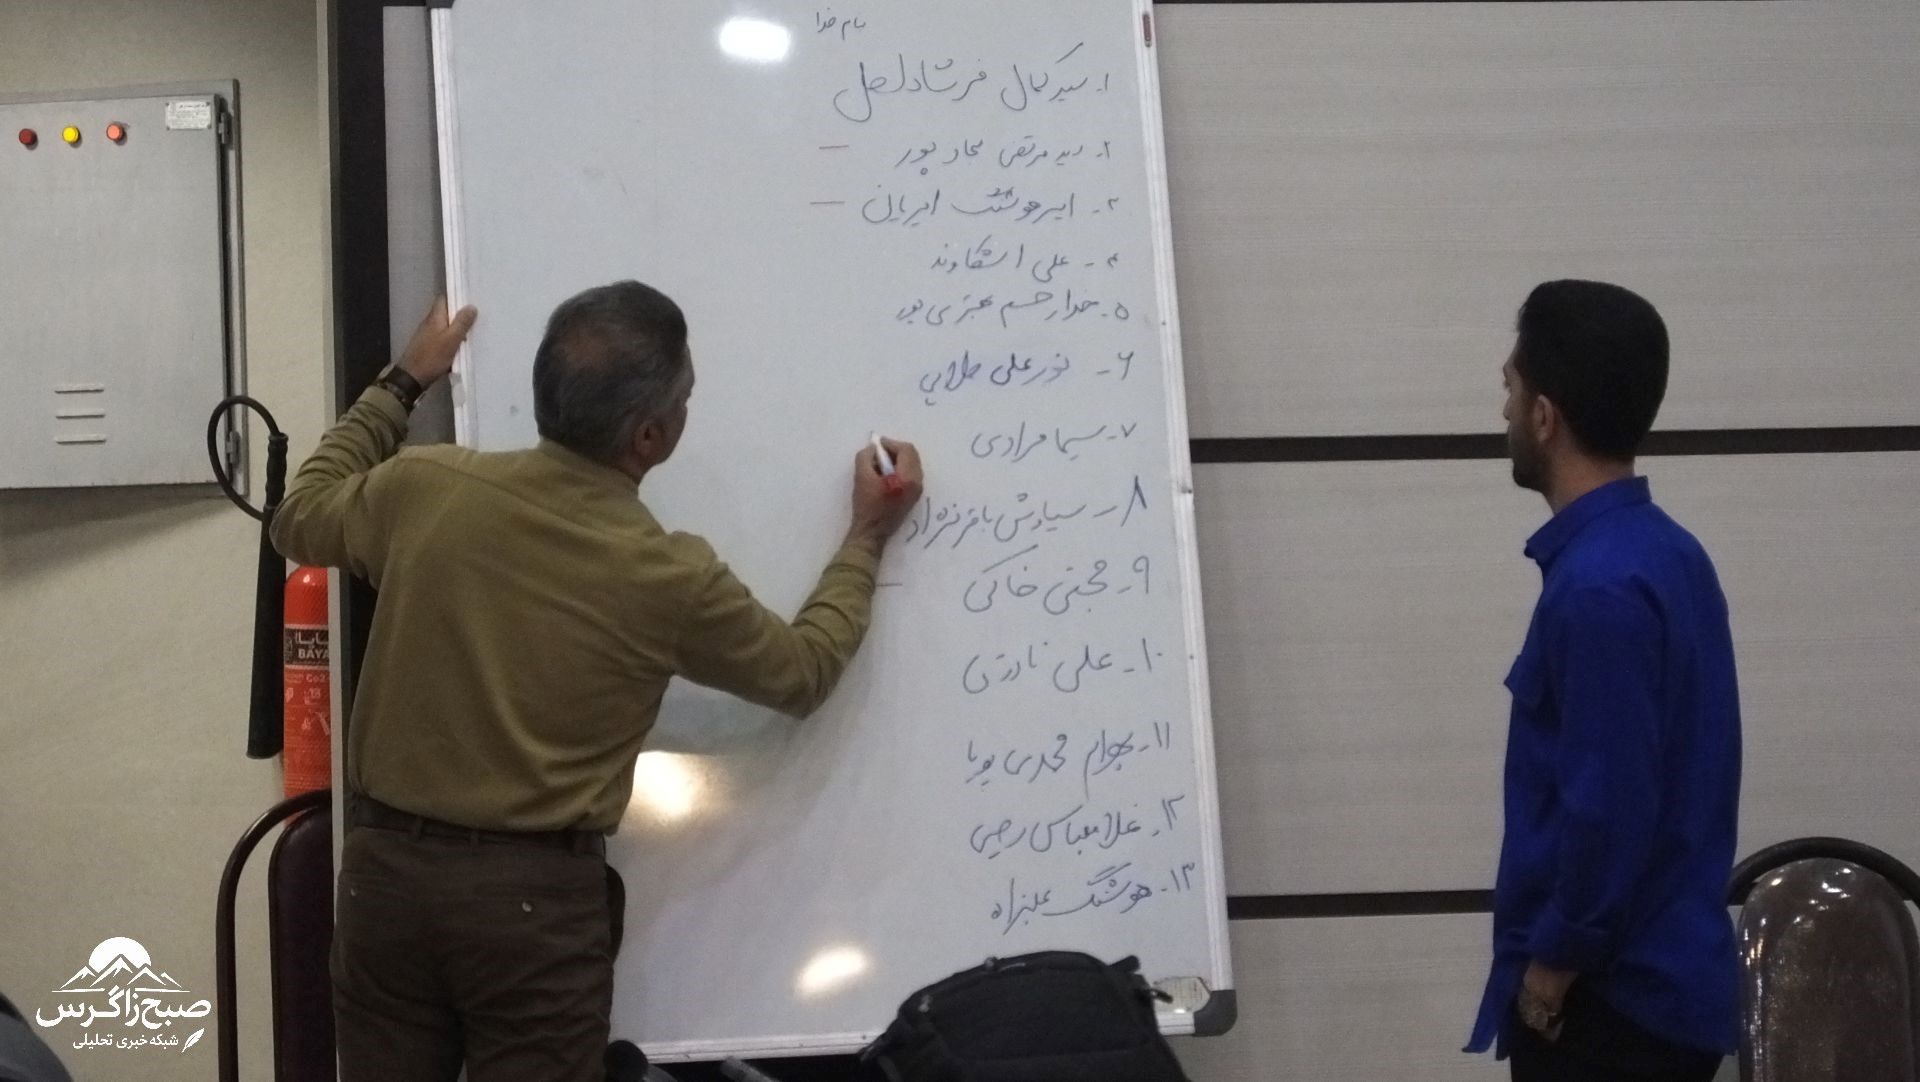 بنام خدا
۱. سید کمال فرشاد اصل
۲. سید مرتضی پور
۳. امیرهوشنگ ایریان
۴. علی اشکاوند
۵. خدارحم پور
۶. نورعلی طلایی
۷. سیما مرادی
۸. سیاوش باقرنژاد
۹. مجتبی خاکی
۱۰. علی نادری
۱۱. بهرام محمدی پویا
۱۲. غلامعباس رحیمی
۱۳. هوشنگ علیزاده
بایا
BAYA
Co2
صبح زاگرس
شبکه خبری تحلیلی